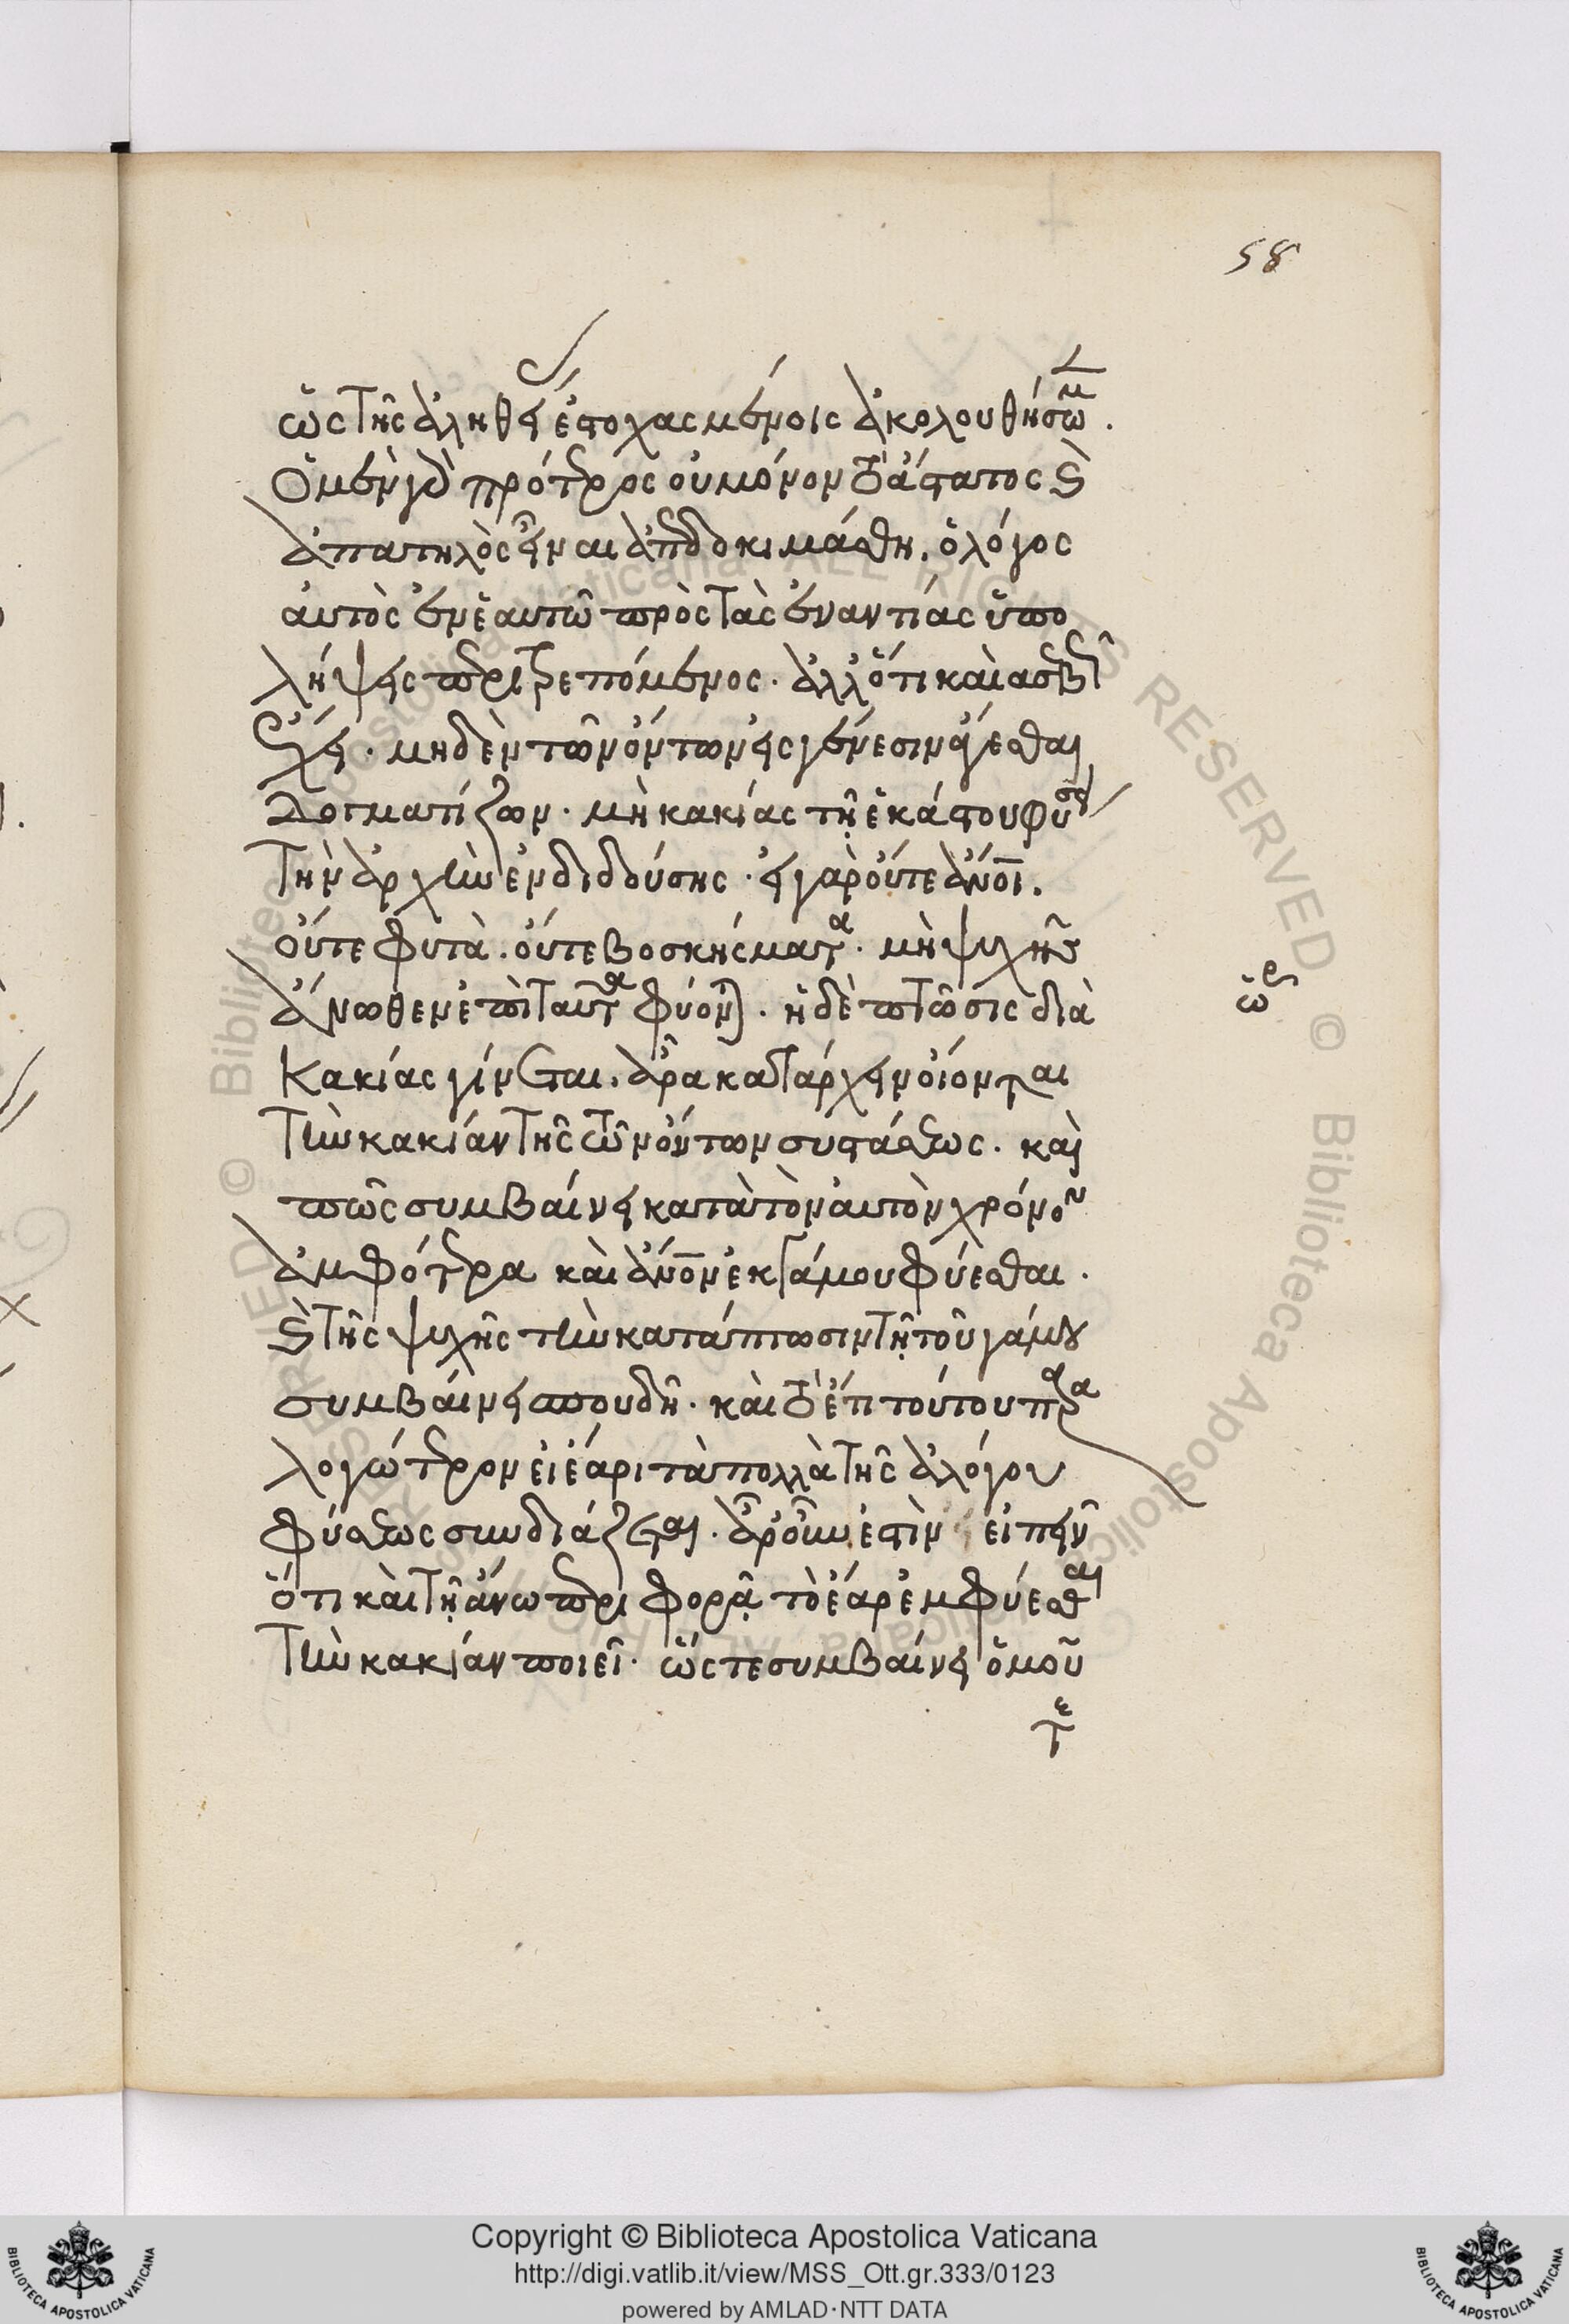 58
ὡς τῆς ἀληθείας ἐστοχασμένοις ἀκολουθήσωμεν.
Ὁ μὲν γὰρ πρότερος οὐ μόνον ὅτι ἄστατος καὶ
ἀπατηλὸς εἶναι ἀπεδοκιμάσθη, ὁ λόγος
αὐτὸς ἐν ἑαυτῷ πρὸς τὰς ἐναντίας ὑπο
λήψεις περιτρεπόμενος. ἀλλ' ὅτι καὶ ἀσεβῶς
ἔχει. μηδὲν τῶν ὄντων εἰς γένεσιν ἄγεσθαι
δογματίζων. μὴ κακίας τῇ ἑκάστου φύσει
τὴν ἀρχὴν ἐνδιδούσης. εἰ γὰρ οὔτε ἄνθρωποι.
οὔτε φυτὰ. οὔτε βοσκήματα. μὴ ψυχῆς
ἄνωθεν ἐπὶ ταῦτα φύονται. ἡ δὲ πτῶσις διὰ
Κακίας γίνεται. ἆρα κατάρχειν οἴονται
τὴν κακίαν τῆς τῶν ὄντων συστάσεως. καὶ
πῶς συμβαίνει κατὰ τὸν αὐτὸν χρόνον
ἀμφότερα καὶ ἄνθρωπον ἐκ γάμου φύεσθαι.
καὶ τῆς ψυχῆς τὴν κατάπτωσιν τῇ τοῦ γάμου
συμβαίνει σπουδῇ. καὶ τὸ ἔτι τούτου παρα
λογώτερον εἰ ἔαρι τὰ πολλὰ τῆς ἀλόγου
φύσεως συνδιάζεται. ἆρ' οὖν ἐστὶν εἰπεῖν
ὅτι καὶ τῇ ἄνω περιφορᾷ τὸ ἔαρ ἐμφύεσθαι
τὴν κακίαν ποιεῖ. ὥστε συμβαίνει ὁμοῦ
τε
ὡρ
Copyright © Biblioteca Apostolica Vaticana
http://digi.vatlib.it/view/MSS_Ott.gr.333/0123
powered by AMLAD·NTT DATA
BIBLIOTECA APOSTOLICA VATICANA
BIBLIOTECA APOSTOLICA VATICANA